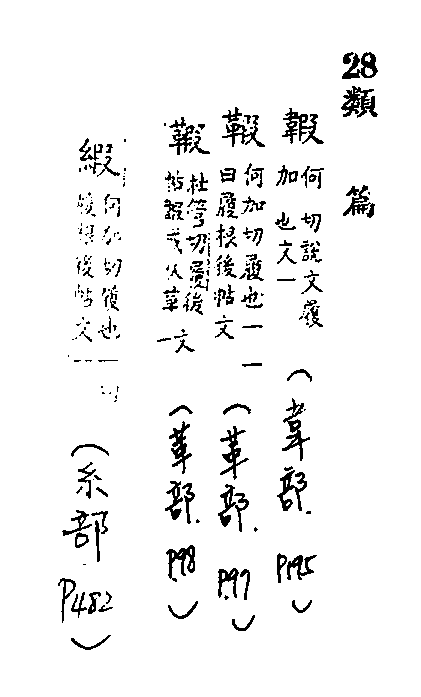 28類篇
韓 何加切說文履也文一
(韋部. P195)
鞎 何加切履也一曰履根後帖文一
(革部. P.97)
杜管切履後帖或从革文一
(革部. P.98)
何加切履也一曰履根後帖文
(糸部 P482)